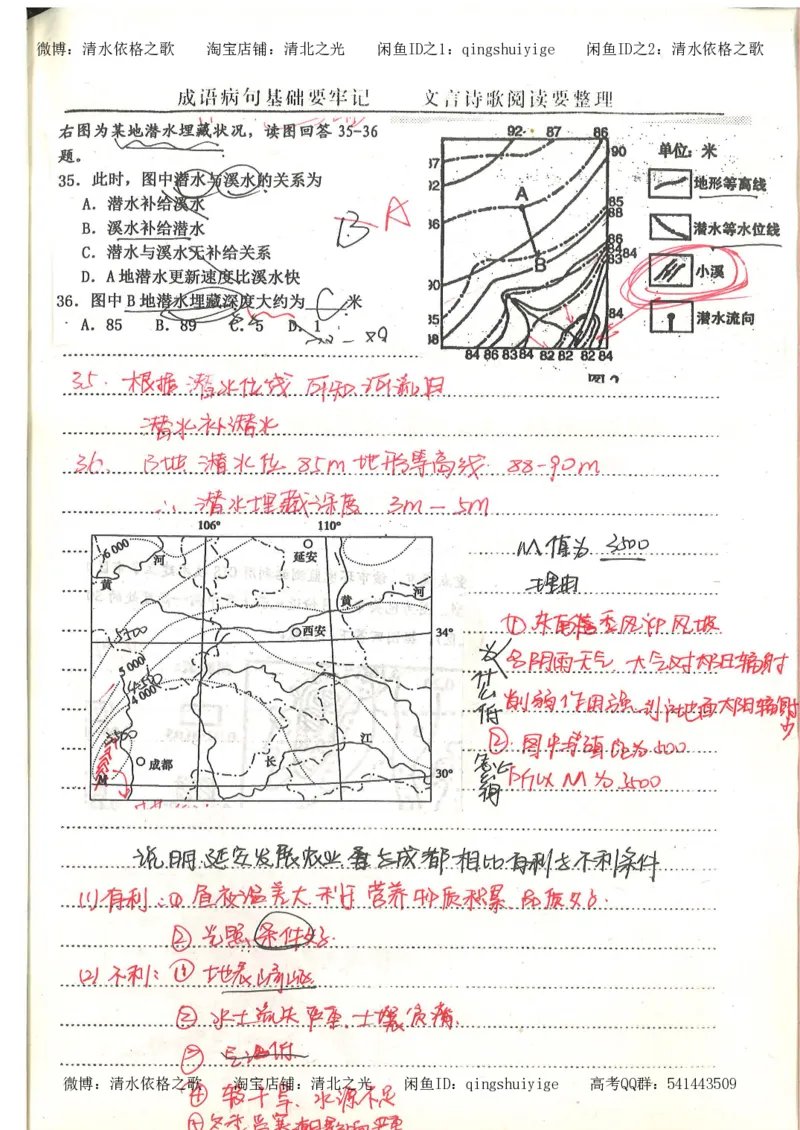 微博：清水依格之歌 淘宝店铺：清北之光 闲鱼ID之1：qingshuiyige 闲鱼ID之2：清水依格之歌
成语病句基础要牢记 文言诗歌阅读要整理
右图为某地潜水埋藏状况，读图回答 35-36
题。
35．此时，图中潜水与溪水的关系为
A．潜水补给溪水
B．溪水补给潜水
C．潜水与溪水无补给关系
D．A地潜水更新速度比溪水快
B A
36．图中 B 地潜水埋藏深度大约为 C 米
A．85 B．89 C．5 D．1
92 87 86
90
85
88
86
84
83 84
84
84 86 83 84 82 82 82 84
A
B
单位：米
地形等高线
潜水等水位线
小溪
潜水流向
35. 根据潜水位线可知河流自
潜水补潜水
36. B地潜水位 85m 地形等高线 88-90m
∴ 潜水埋藏深度 3m-5m
106° 110°
6000
河
延安
黄
黄
河
5500
西安
34°
5000
4500
4000
3500
成都
长
江
30°
M
M值为 3500
理由
① 东南季风迎风坡
多阴雨天气 大气对太阳辐射
削弱作用强，到达地面太阳辐射
少
为什么低
② 图中等值距为500
所以M为3500
说明延安发展农业与成都相比有利与不利条件
(1)有利：① 昼夜温差大 利于营养物质积累 品质好.
② 光照条件好.
(2) 不利：① 地表崎岖
② 水土流失严重，土壤贫瘠.
③ 气温低
④ 较干旱、水源不足
微博：清水依格之歌 淘宝店铺：清北之光 闲鱼ID：qingshuiyige 高考QQ群：541443509